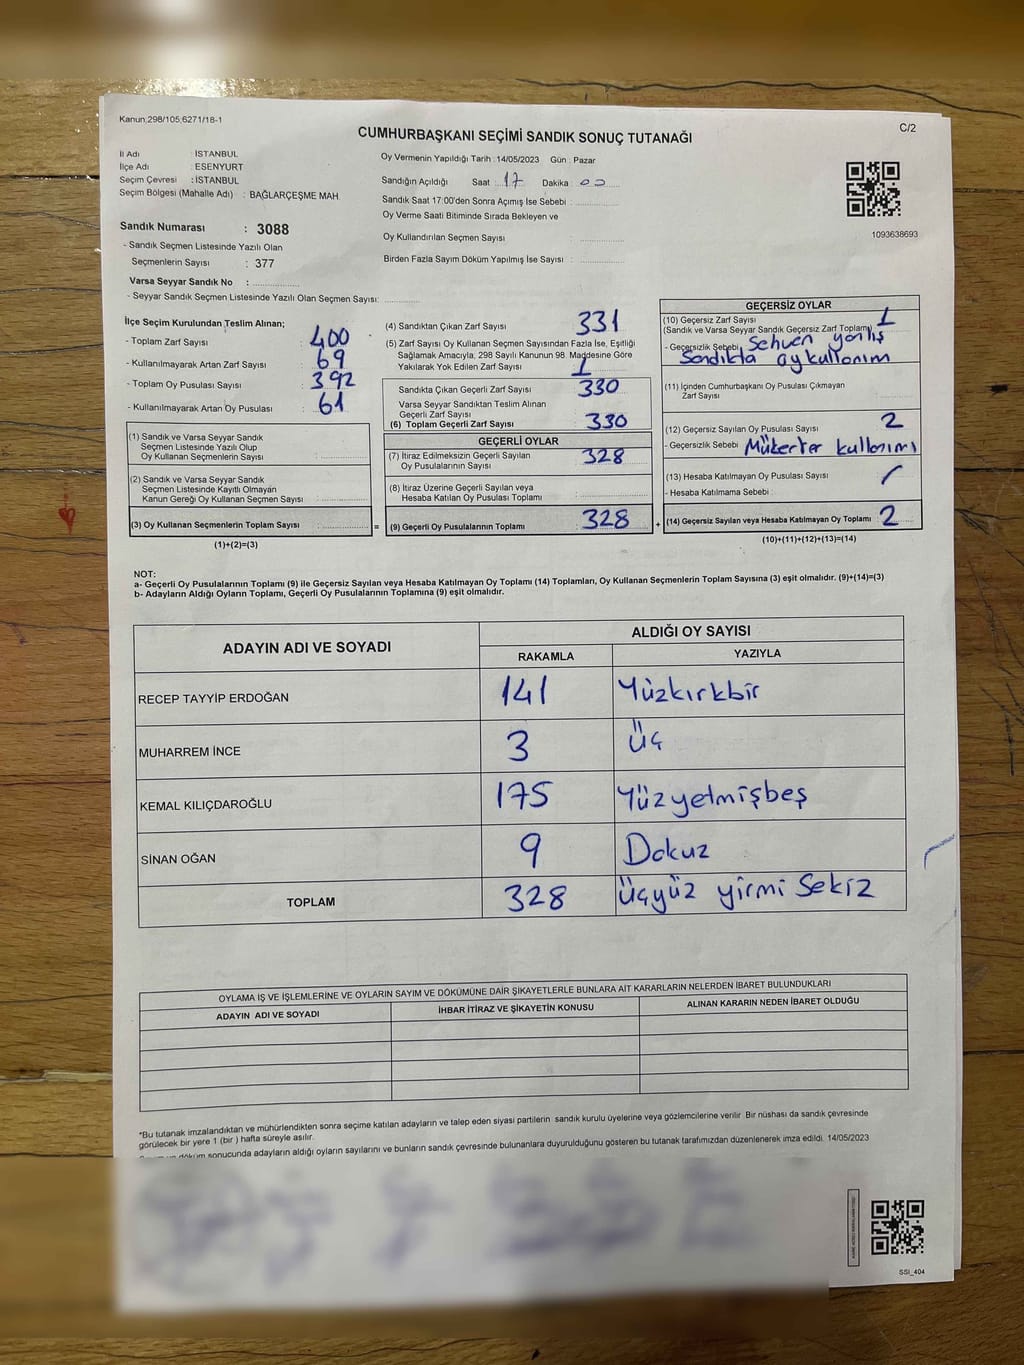 Kanun;298/105,6271/18-1
C/2
CUMHURBAŞKANI SEÇİMİ SANDIK SONUÇ TUTANAĞI
İl Adı : İSTANBUL
İlçe Adı : ESENYURT
Seçim Çevresi : İSTANBUL
Seçim Bölgesi (Mahalle Adı) : BAĞLARÇEŞME MAH.
Oy Vermenin Yapıldığı Tarih : 14/05/2023 Gün : Pazar
Sandığın Açıldığı Saat : 17 Dakika : 00
Sandık Saat 17:00'den Sonra Açımış İse Sebebi :
Oy Verme Saati Bitiminde Sırada Bekleyen ve
Oy Kullandırılan Seçmen Sayısı :
Birden Fazla Sayım Döküm Yapılmış İse Sayısı :
1093638693
Sandık Numarası : 3088
- Sandık Seçmen Listesinde Yazılı Olan
Seçmenlerin Sayısı : 377
Varsa Seyyar Sandık No :
- Seyyar Sandık Seçmen Listesinde Yazılı Olan Seçmen Sayısı:
İlçe Seçim Kurulundan Teslim Alınan;
- Toplam Zarf Sayısı : 400
- Kullanılmayarak Artan Zarf Sayısı : 69
- Toplam Oy Pusulası Sayısı : 392
- Kullanılmayarak Artan Oy Pusulası : 61
(1) Sandık ve Varsa Seyyar Sandık
Seçmen Listesinde Yazılı Olup
Oy Kullanan Seçmenlerin Sayısı :
(2) Sandık ve Varsa Seyyar Sandık
Seçmen Listesinde Kayıtlı Olmayan
Kanun Gereği Oy Kullanan Seçmen Sayısı :
(3) Oy Kullanan Seçmenlerin Toplam Sayısı : =
(1)+(2)=(3)
(4) Sandıktan Çıkan Zarf Sayısı : 331
(5) Zarf Sayısı Oy Kullanan Seçmen Sayısından Fazla İse, Eşitliği
Sağlamak Amacıyla, 298 Sayılı Kanunun 98. Maddesine Göre
Yakılarak Yok Edilen Zarf Sayısı : 1
Sandıkta Çıkan Geçerli Zarf Sayısı : 330
Varsa Seyyar Sandıktan Teslim Alınan
Geçerli Zarf Sayısı :
(6) Toplam Geçerli Zarf Sayısı : 330
GEÇERLİ OYLAR
(7) İtiraz Edilmeksizin Geçerli Sayılan
Oy Pusulalarının Sayısı : 328
(8) İtiraz Üzerine Geçerli Sayılan veya
Hesaba Katılan Oy Pusulası Toplamı :
(9) Geçerli Oy Pusulalarının Toplamı : 328 +
GEÇERSİZ OYLAR
(10) Geçersiz Zarf Sayısı 1
(Sandık ve Varsa Seyyar Sandık Geçersiz Zarf Toplamı)
- Geçersizlik Sebebi Sehven yanlış
Sandıkta oy kullanım
(11) İçinden Cumhurbaşkanı Oy Pusulası Çıkmayan
Zarf Sayısı :
(12) Geçersiz Sayılan Oy Pusulası Sayısı : 2
- Geçersizlik Sebebi : Mükerrer kullanımı
(13) Hesaba Katılmayan Oy Pusulası Sayısı :
- Hesaba Katılmama Sebebi :
(14) Geçersiz Sayılan veya Hesaba Katılmayan Oy Toplamı : 2
(10)+(11)+(12)+(13)=(14)
NOT:
a- Geçerli Oy Pusulalarının Toplamı (9) ile Geçersiz Sayılan veya Hesaba Katılmayan Oy Toplamı (14) Toplamları, Oy Kullanan Seçmenlerin Toplam Sayısına (3) eşit olmalıdır. (9)+(14)=(3)
b- Adayların Aldığı Oyların Toplamı, Geçerli Oy Pusulalarının Toplamına (9) eşit olmalıdır.
ADAYIN ADI VE SOYADI ALDIĞI OY SAYISI
RAKAMLA YAZIYLA
RECEP TAYYİP ERDOĞAN 141 Yüzkırkbir
MUHARREM İNCE 3 Üç
KEMAL KILIÇDAROĞLU 175 Yüzyetmişbeş
SİNAN OĞAN 9 Dokuz
TOPLAM 328 Üçyüz yirmi Sekiz
OYLAMA İŞ VE İŞLEMLERİNE VE OYLARIN SAYIM VE DÖKÜMÜNE DAİR ŞİKAYETLERLE BUNLARA AİT KARARLARIN NELERDEN İBARET BULUNDUKLARI
ADAYIN ADI VE SOYADI İHBAR İTİRAZ VE ŞİKAYETİN KONUSU ALINAN KARARIN NEDEN İBARET OLDUĞU
*Bu tutanak imzalandıktan ve mühürlendikten sonra seçime katılan adayların ve talep eden siyasi partilerin sandık kurulu üyelerine veya gözlemcilerine verilir. Bir nüshası da sandık çevresinde
görülecek bir yere 1 (bir ) hafta süreyle asılır.
döküm sonucunda adayların aldığı oyların sayılarını ve bunların sandık çevresinde bulunanlara duyurulduğunu gösteren bu tutanak tarafımızdan düzenlenerek imza edildi. 14/05/2023
SSI_404